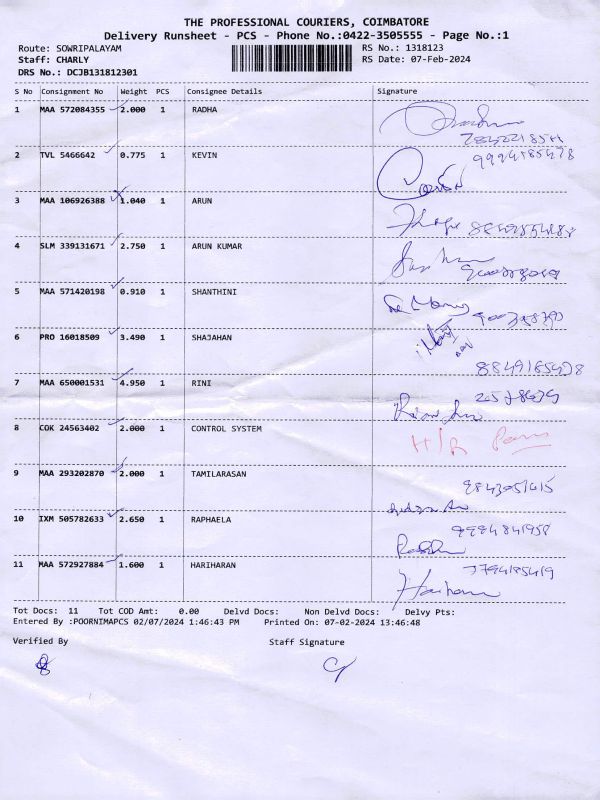 THE PROFESSIONAL COURIERS, COIMBATORE
Delivery Runsheet - PCS - Phone No.:0422-3505555 - Page No.:1
Route: SOWRIPALAYAM RS No.: 1318123
Staff: CHARLY RS Date: 07-Feb-2024
DRS No.: DCJB131812301
S No Consignment No Weight PCS Consignee Details Signature
1 MAA 572084355 2.000 1 RADHA
2 TVL 5466642 0.775 1 KEVIN
3 MAA 106926388 1.040 1 ARUN
4 SLM 339131671 2.750 1 ARUN KUMAR
5 MAA 571420198 0.910 1 SHANTHINI
6 PRO 16018509 3.490 1 SHAJAHAN
7 MAA 650001531 4.950 1 RINI
8 COK 24563402 2.000 1 CONTROL SYSTEM
9 MAA 293202870 2.000 1 TAMILARASAN
10 IXM 505782633 2.650 1 RAPHAELA
9994841958
11 MAA 572927884 1.600 1 HARIHARAN
Tot Docs: 11 Tot COD Amt: 0.00 Delvd Docs: Non Delvd Docs: Delvy Pts:
Entered By :POORNIMAPCS 02/07/2024 1:46:43 PM Printed On: 07-02-2024 13:46:48
Verified By Staff Signature